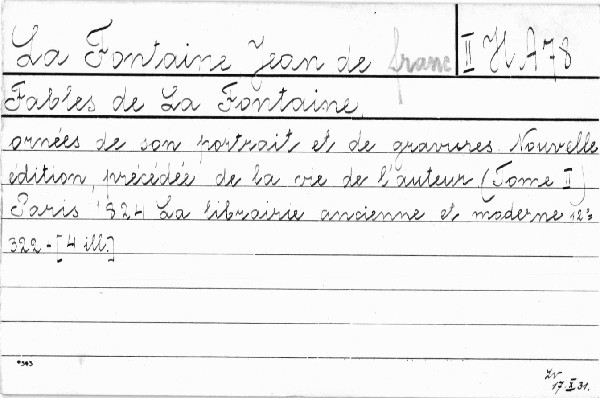 La Fontaine Jean de franc II H A 78
Fables de La Fontaine,
ornées de son portrait et de gravures. Nouvelle
édition, précédée de la vie de l'auteur (Tome II)
Paris 1824 La librairie ancienne et moderne 12°
322-[4 ill.]
*343
17.X.31.